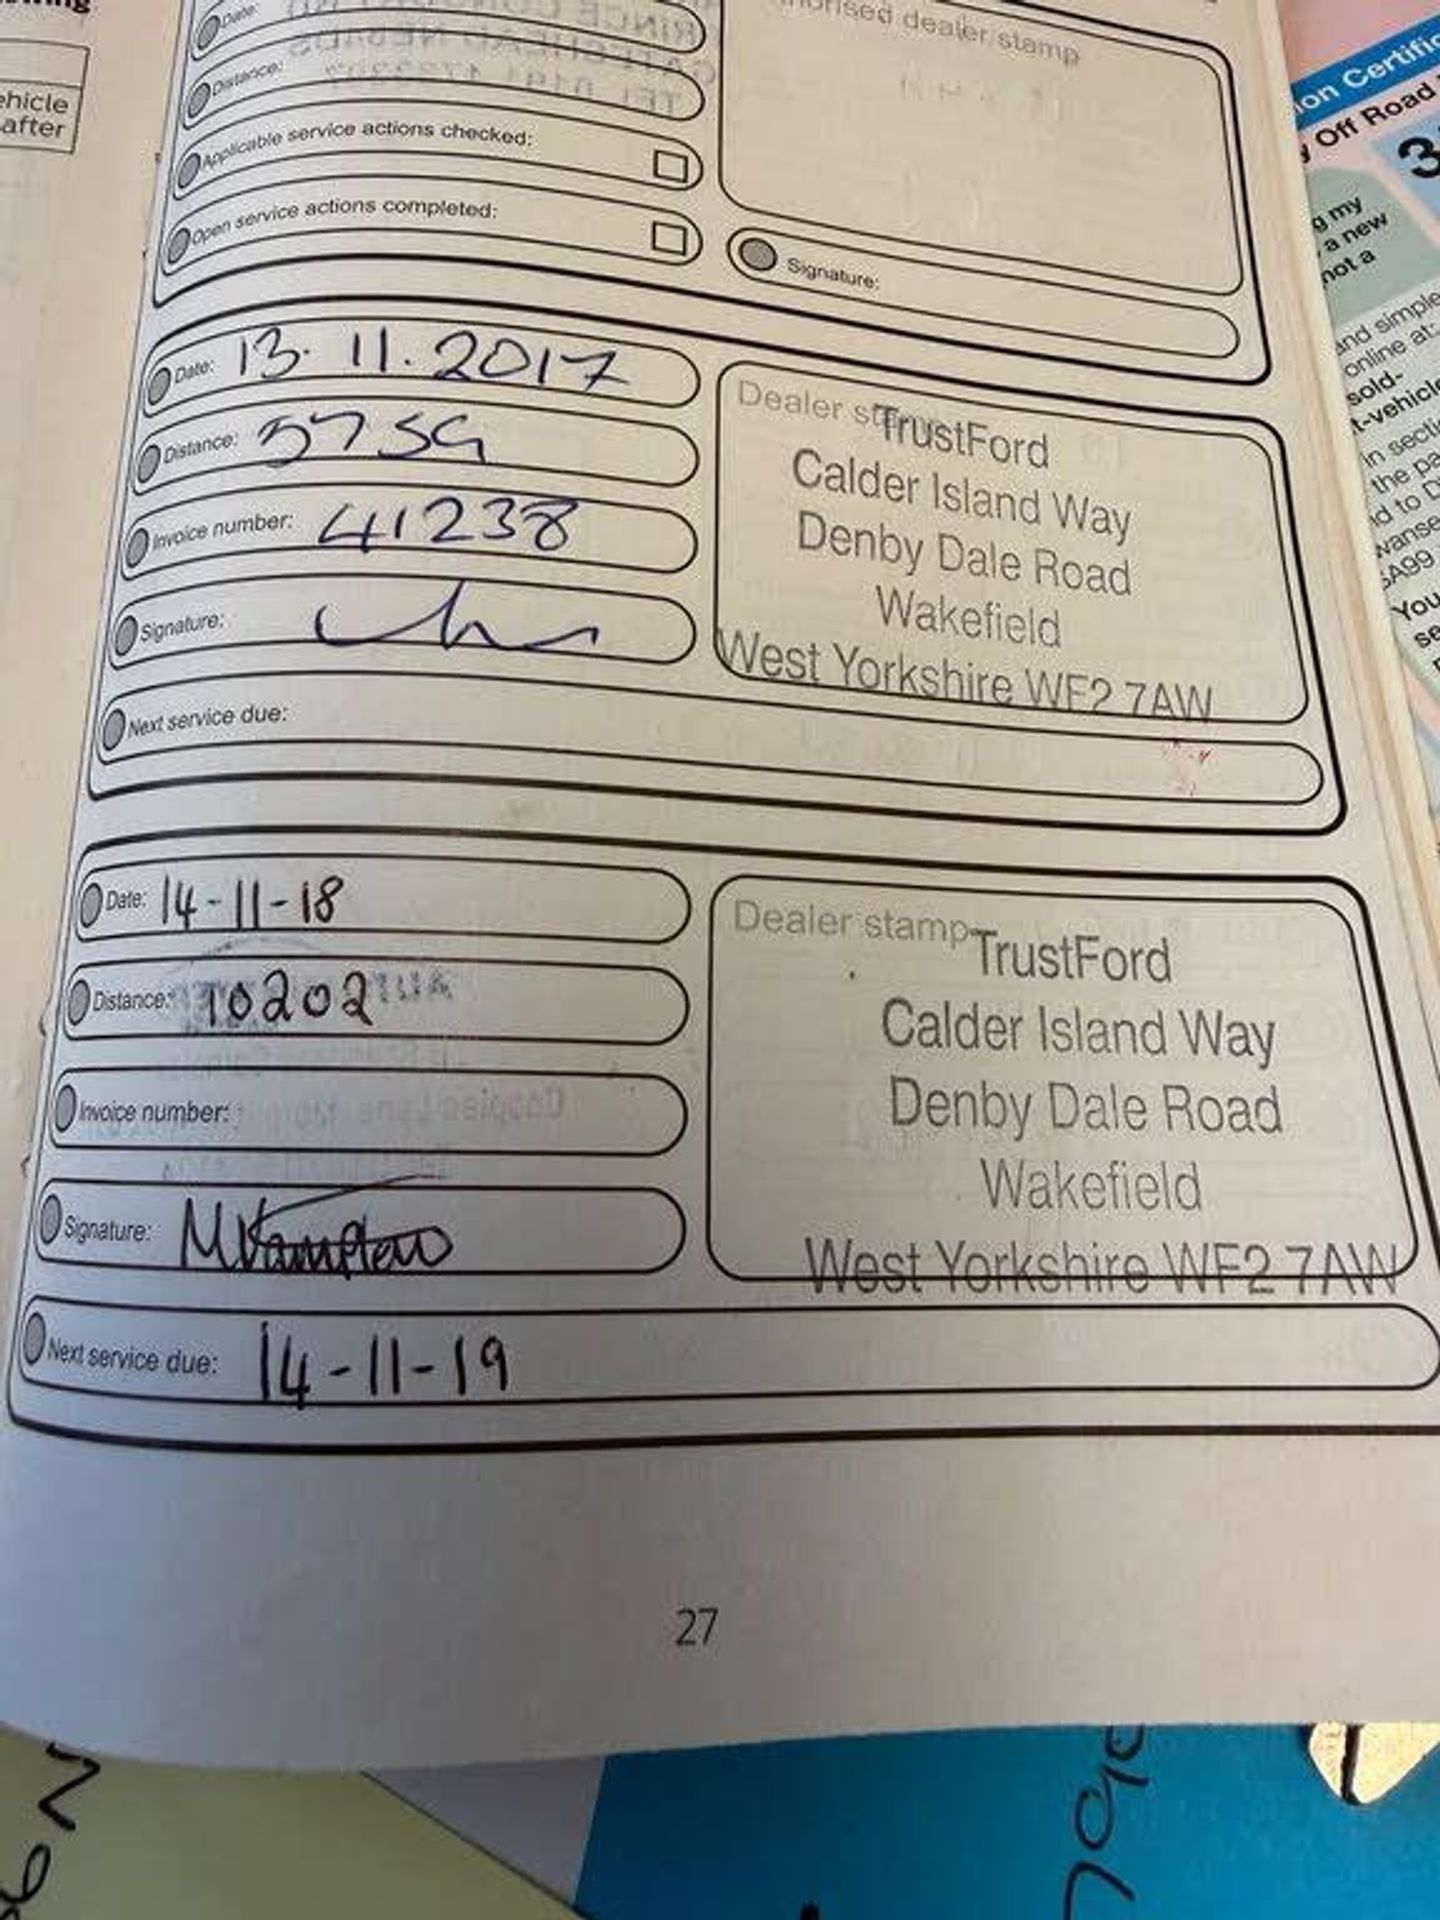 Date:
Distance:
Applicable service actions checked:
Open service actions completed:
dealer stamp
Signature:
Date: 13.11.2017
Distance:
Invoice number: 41238
Signature:
Next service due:
Dealer
TrustFord
Calder Island Way
Denby Dale Road
Wakefield
West Yorkshire WF2 7AW
Date: 14-11-18
Distance: 10202
Invoice number:
Signature:
Next service due: 14-11-19
Dealer stamp
TrustFord
Calder Island Way
Denby Dale Road
Wakefield
West Yorkshire WF2 7AW
27
ehicle
after
ion Certific
y Off Road
3
g my
a new
not a
and simple
online at:
sold-
t-vehicle
in secti
the pa
id to D
wanse
SA99
You
se